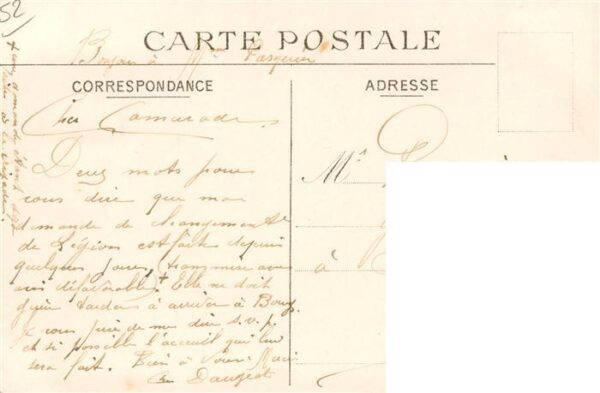 52
Bonjour à Mme Fasquier
CARTE POSTALE
CORRESPONDANCE
ADRESSE
Cher Camarade,
Deux mots pour
vous dire que ma
demande de changement de
de Légion est faite depuis
quelques jours, (transmise avec
avis défavorable). + Elle ne doit
tarder à arriver à Bourg.
Je vous prie de me dire s.v.p.
et si possible l'accueil qui leur
sera fait. Bien à vous. Merci
Daugeat
M
à